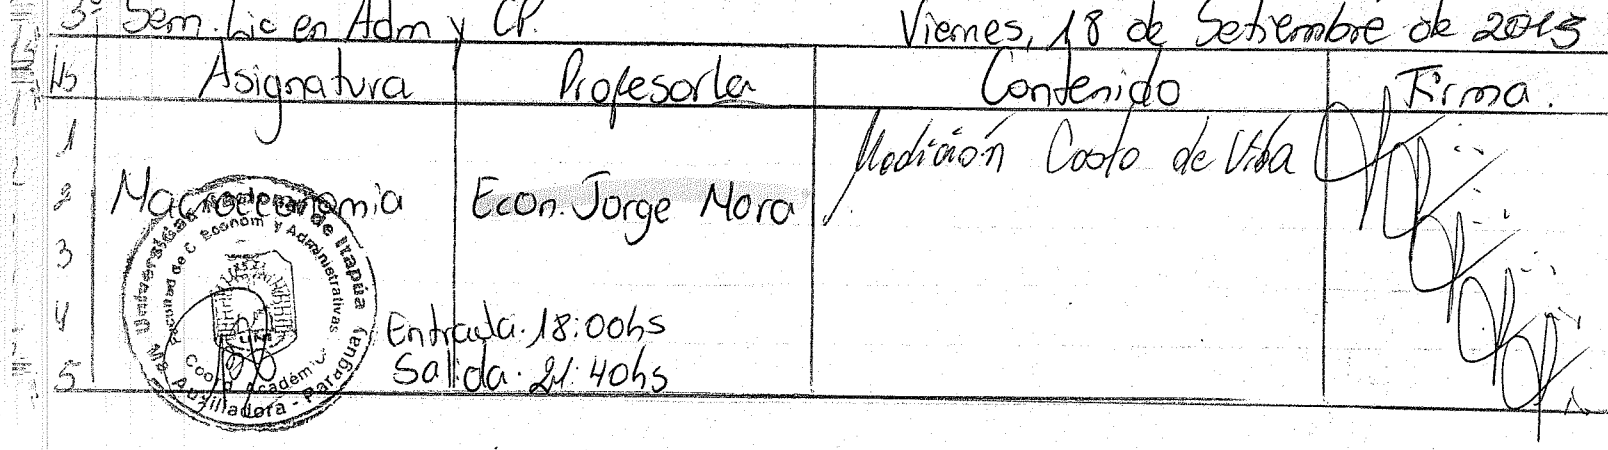 3º Sem. Lic en Adm y CP. Viernes, 18 de Setiembre de 2015
Hs Asignatura Profesor/a Contenido Firma.
1 Medición Costo de Vida
2 Macroeconomia Econ. Jorge Mora
3
4 Entrada. 18:00hs
5 Salida. 21:40hs
Universidad Nacional de Itapúa
Facultad de C. Econom y Administrativas
UNI
Coord. Académic
Mª Auxiliadora - Paraguay